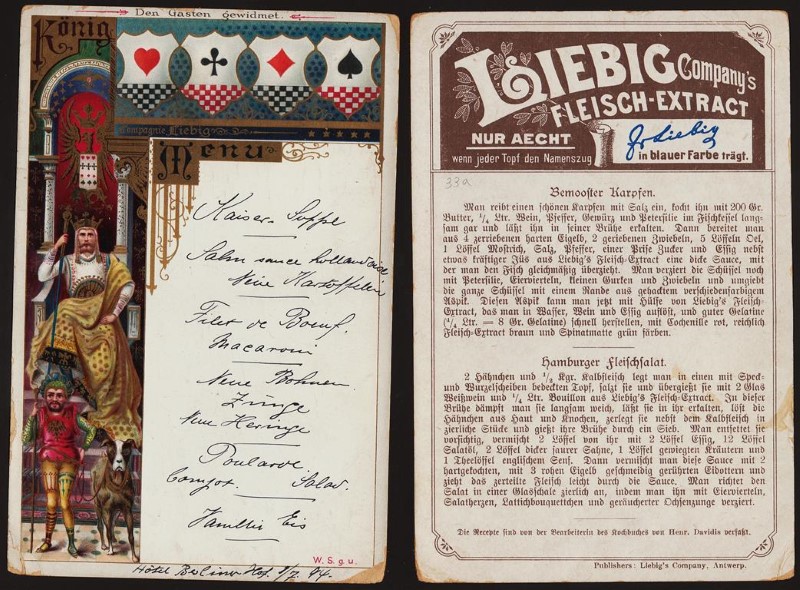 Den Gästen gewidmet.
König
Compagnie Liebig
Menu
Kaiser-Suppe
Salm sauce hollandaise
Neue Kartoffeln
Filet de Boeuf.
Macaroni
Neue Bohnen
Zunge
Neue Heringe
Poularde.
Compot Salad.
Vanillen Eis
W. S. g. u.
Hôtel Berliner Hof. 8/7. 94.
LIEBIG Company's
FLEISCH-EXTRACT
NUR AECHT
wenn jeder Topf den Namenszug
JvLiebig
in blauer Farbe trägt.
33a
Bemooster Karpfen.
Man reibt einen schönen Karpfen mit Salz ein, kocht ihn mit 200 Gr.
Butter, 1/4 Ltr. Wein, Pfeffer, Gewürz und Petersilie im Fischkessel lang-
sam gar und läßt ihn in seiner Brühe erkalten. Dann bereitet man
aus 4 zerriebenen harten Eigelb, 2 geriebenen Zwiebeln, 5 Löffeln Oel,
1 Löffel Mostrich, Salz, Pfeffer, einer Prise Zucker und Essig nebst
etwas kräftiger Jüs aus Liebig's Fleisch-Extract eine dicke Sauce, mit
der man den Fisch gleichmäßig überzieht. Man verziert die Schüssel noch
mit Petersilie, Eiervierteln, kleinen Gurken und Zwiebeln und umgiebt
die ganze Schüssel mit einem Rande aus gehacktem verschiedenfarbigem
Aspik. Diesen Aspik kann man jetzt mit Hülfe von Liebig's Fleisch-
Extract, das man in Wasser, Wein und Essig auflöst, und guter Gelatine
(1/4 Ltr. = 8 Gr. Gelatine) schnell herstellen, mit Cochenille rot, reichlich
Fleisch-Extract braun und Spinatmatte grün färben.
Hamburger Fleischsalat.
2 Hähnchen und 1/2 Kgr. Kalbfleisch legt man in einen mit Speck-
und Wurzelscheiben bedeckten Topf, salzt sie und übergießt sie mit 2 Glas
Weißwein und 1/4 Ltr. Bouillon aus Liebig's Fleisch-Extract. In dieser
Brühe dämpft man sie langsam weich, läßt sie in ihr erkalten, löst die
Hähnchen aus Haut und Knochen, zerlegt sie nebst dem Kalbfleisch in
zierliche Stücke und gießt ihre Brühe durch ein Sieb. Man entfettet sie
vorsichtig, vermischt 2 Löffel von ihr mit 2 Löffel Essig, 12 Löffel
Salatöl, 2 Löffel dicker saurer Sahne, 1 Löffel gewiegten Kräutern und
1 Theelöffel englischem Senf. Dann vermischt man diese Sauce mit 2
hartgekochten, mit 3 rohen Eigelb geschmeidig gerührten Eidottern und
zieht das zerteilte Fleisch leicht durch die Sauce. Man richtet den
Salat in einer Glasschale zierlich an, indem man ihn mit Eiervierteln,
Salatherzen, Lattichbouquettchen und geräucherter Ochsenzunge verziert.
Die Recepte sind von der Bearbeiterin des Kochbuches von Henr. Davidis verfaßt.
Publishers: Liebig's Company, Antwerp.